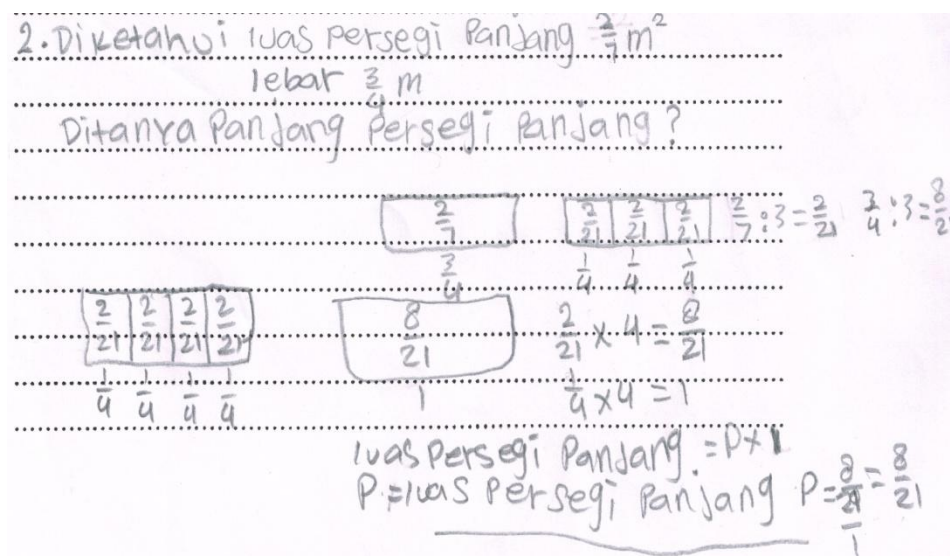 2. Diketahui luas persegi Panjang 2/7 m²
lebar 3/4 m
Ditanya Panjang Persegi Panjang?
2/7 2/21 2/21 2/21 2/7 : 3 = 2/21 3/4 : 3 = 8/2
3/4 1/4 1/4 1/4
2/21 2/21 2/21 2/21 8/21 2/21 x 4 = 8/21
1/4 1/4 1/4 1/4 1 1/4 x 4 = 1
luas persegi Panjang = P x 1
P = luas Persegi Panjang P = 8/21/1 = 8/21